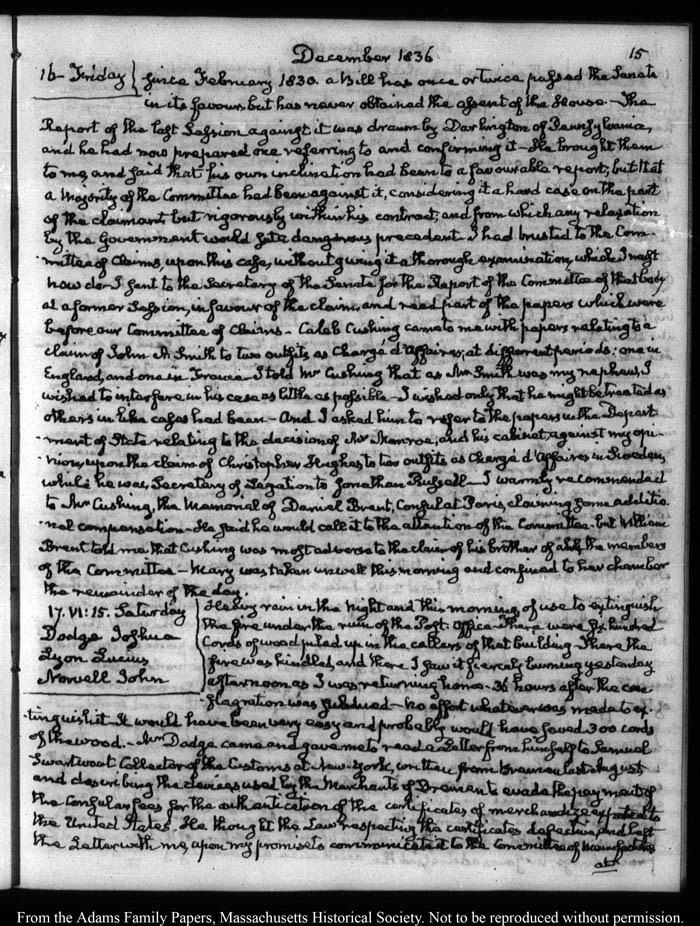 December 1836
15
16 Friday
Since February 1830. a Bill has once or twice passed the Senate
in its favour but has never obtained the assent of the House. The
Report of the last Session against it was drawn by Darlington of Pennsylvania,
and he had now prepared one referring to and confirming it—He brought them
to me, and said that his own inclination had been to a favourable report, but that
a Majority of the Committee had been against it, considering it a hard case on the part
of the claimant but rigorously within his contract, and from which any relaxation
by the Government would be a dangerous precedent. I had trusted to the Com-
mittee of Claims, upon this case, without giving it a thorough examination, which I must
now do. I sent to the Secretary of the Senate for the Report of the Committee of that body
at a former Session, in favour of the claim, and read part of the papers which were
before our Committee of Claims—Caleb Cushing came to me with papers relating to a
claim of John A. Smith to two outfits as Chargé d'Affaires, at different periods: one in
England, and one in France. I told Mr Cushing that as Mr Smith was my nephew, I
wished to interfere in his case as little as possible—I wished only that he might be treated as
others in like cases had been—And I asked him to refer to the papers in the Depart-
ment of State relating to the decision of Mr Monroe, and his cabinet, against my opi-
nion, upon the claim of Christopher Hughes to two outfits as Chargé d'Affaires in Sweden,
while he was Secretary of Legation to Jonathan Russell—I warmly recommended
to Mr Cushing, the Memorial of Daniel Brent, Consul at Paris, claiming some additio-
nal compensation—He said he would call it to the attention of the Committee. but William
Brent told me that Cushing was most adverse to the claim of his brother of all the members
of the Committee—Mary was taken unwell this morning and confined to her chamber
the remainder of the day.
17. VI:15. Saturday
Dodge Joshua
Lyon Lucius
Norvell John
Heavy rain in the Night and this morning of use to extinguish
the fire under the ruin of the Post Office. There were six hundred
Cords of wood piled up in the cellars of that building. There the
fire was kindled, and there I saw it fiercely burning yesterday
afternoon as I was returning home. 36 hours after the con-
flagration was subdued—no effort whatever was made to ex-
tinguish it. It would have been very easy and probably would have saved 300 cords
of the wood.—Mr Dodge came and gave me to read a Letter from himself to Samuel
Swartwout Collector of the Customs at New-York, written from Bremen last August
and describing the devices used by the Merchants of Bremen to evade the payment of
the Consular fees for the authentication of the certificates of merchandize exported to
the United States. He thought the Law respecting the certificates defective, and left
the Letter with me, upon my promise to communicate it to the Committee of Manufactures
From the Adams Family Papers, Massachusetts Historical Society. Not to be reproduced without permission.